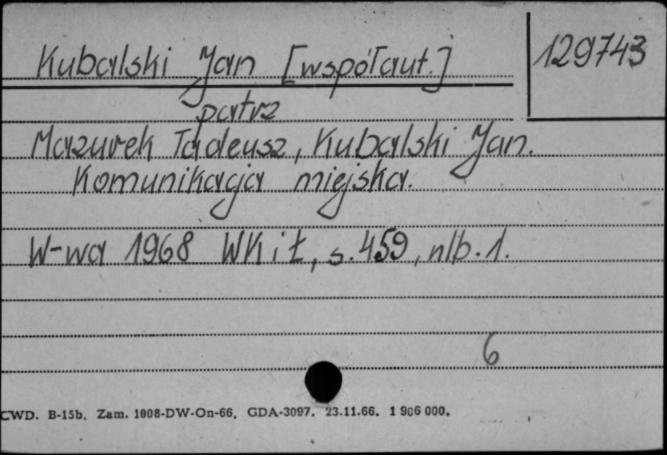 Kubalski Jan [współaut.]
129743
patrz
Mazurek Tadeusz, Kubalski Jan.
Komunikacja miejska.
W-wa 1968 WKiŁ, s. 459, nlb. 1.
6
CWD. B-15b. Zam. 1008-DW-On-66. GDA-3097. 23.11.66. 1 906 000.